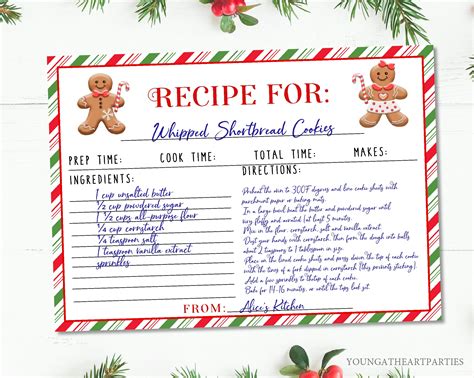 RECIPE FOR:
Whipped Shortbread Cookies
PREP TIME: COOK TIME: TOTAL TIME: MAKES:
INGREDIENTS:
1 cup unsalted butter
1/2 cup powdered sugar
1 1/2 cups all-purpose flour
1/4 cup cornstarch
1/4 teaspoon salt
1/4 teaspoon vanilla extract
sprinkles
DIRECTIONS:
Preheat the oven to 300F degrees and line cookie sheets with
parchment paper or baking mats.
In a large bowl beat the butter and powdered sugar until
very fluffy and aerated (at least 5 minutes).
Mix in the flour, cornstarch, salt and vanilla extract.
Dust your hands with cornstarch, then form the dough into balls
about 2 teaspoons to 1 tablespoon in size.
Place on the lined cookie sheets and press down the top of each
with the tines of a fork dipped in cornstarch (this prevents sticking).
Add a few sprinkles to the top of each.
Bake for 14-16 minutes, or until the tops look set.
FROM: Alice's Kitchen
YOUNGATHEARTPARTIES